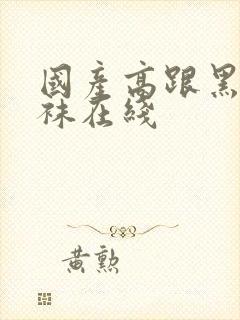 國產高跟黑
袜在綫
黃勲